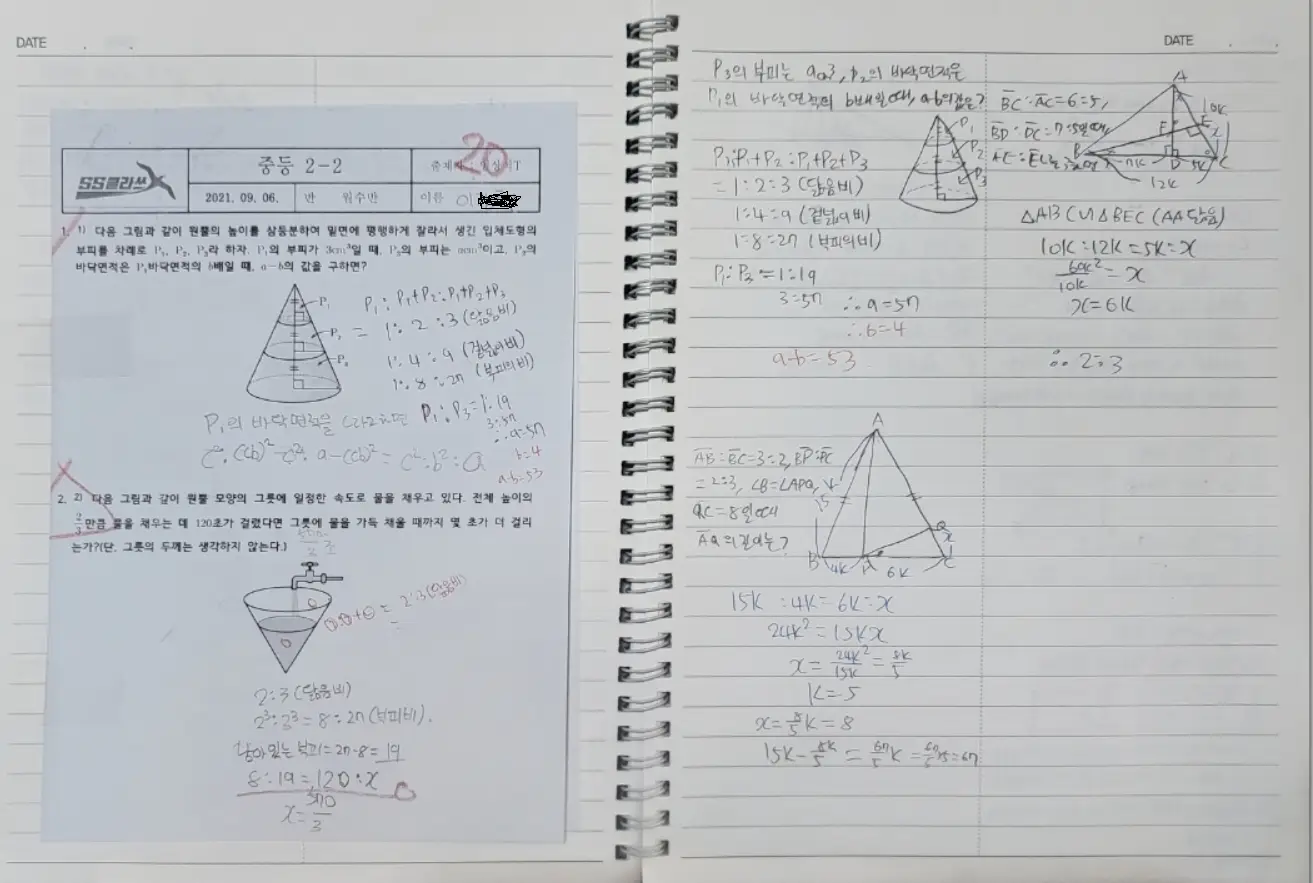 DATE . .
SS클라쓰
중등 2-2
20
2021. 09. 06.
반
위수반
이름
1. 1) 다음 그림과 같이 원뿔의 높이를 삼등분하여 밑면에 평행하게 잘라서 생긴 입체도형의
부피를 차례로 P₁, P₂, P₃라 하자. P₁의 부피가 3cm³일 때, P₃의 부피는 acm³이고, P₂의
바닥면적은 P₁바닥면적의 b배일 때, a-b의 값을 구하면?
P₁
P₂
P₃
P₁ : P₁+P₂ : P₁+P₂+P₃
= 1 : 2 : 3 (닮음비)
1 : 4 : 9 (겉넓이비)
1 : 8 : 27 (부피의비)
P₁의 바닥면적을 c라고하면
P₁ : P₃ = 1 : 19
3 : 57
∴ a=57
b=4
a-b=53
2. 2) 다음 그림과 같이 원뿔 모양의 그릇에 일정한 속도로 물을 채우고 있다. 전체 높이의
2/3만큼 물을 채우는 데 120초가 걸렸다면 그릇에 물을 가득 채울 때까지 몇 초가 더 걸리
는가?(단, 그릇의 두께는 생각하지 않는다.)
= 2:3 (닮음비)
2:3 (닮음비)
2³:3³ = 8:27 (부피비).
남아있는 부피 = 27-8 = 19
8 : 19 = 120 : x
x = 570/3
DATE . .
P₃의 부피는 acm³, P₂의 바닥면적은
P₁의 바닥면적의 b배일때, a-b의값은?
P₁
P₂
P₃
P₁:P₁+P₂:P₁+P₂+P₃
= 1:2:3 (닮음비)
1:4:9 (겉넓이비)
1:8:27 (부피의비)
P₁:P₃ = 1:19
3:57 ∴ a=57
∴ b=4
a-b=53
BC:AC=6:5,
BD:DC=7:5일때,
A
10K
E
F
x
B
7K
D
5K
C
12K
△ADC∽△BEC (AA닮음)
10K:12K=5K:x
60K²/10K = x
x=6K
∴ 2:3
AB:BC=3:2, BP:PC
=2:3, ∠B=∠APQ,
QC=8일때
AQ의길이는?
A
Q
x
B
4K
P
6K
C
15K:4K=6K:x
24K²=15Kx
x = 24K²/15K = 8K/5
K=5
x=8/5K=8
15K-8K/5 = 67/5K = 67/5·5=67